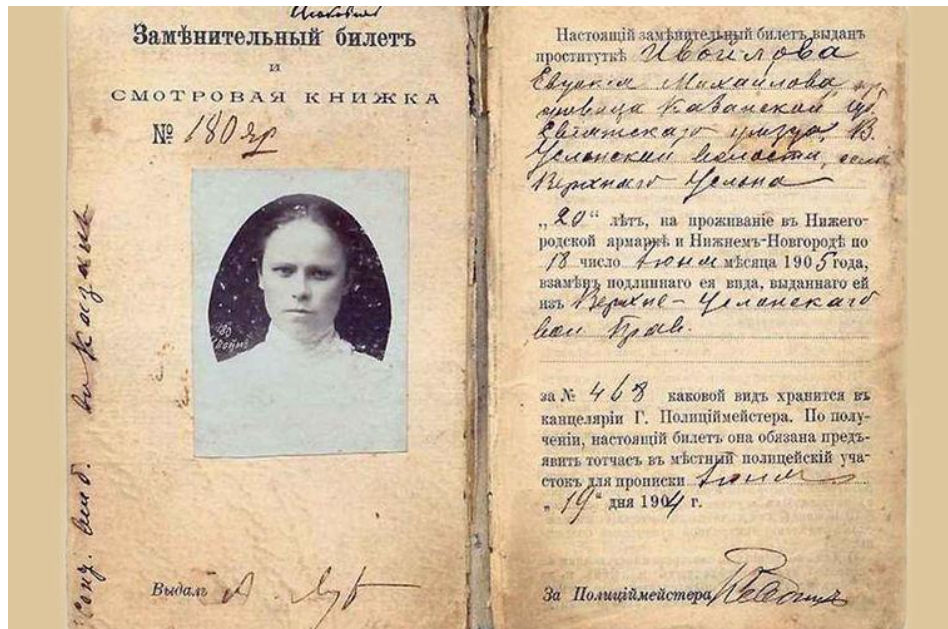 Замѣнительный билетъ
и
СМОТРОВАЯ КНИЖКА
№ 180 яр
Выдалъ
Настоящій замѣнительный билетъ выданъ
проституткѣ Ивойлова
Евдокия Михайлова
Казанской губ.
Свіяжскаго уѣзда, В.
Услонской волости, села
Верхняго Услона
„20“ лѣтъ, на проживаніе въ Нижего-
родской ярмаркѣ и Нижнемъ-Новгородѣ по
18 число Іюня мѣсяца 1905 года,
взамѣнъ подлиннаго ея вида, выданнаго ей
изъ Верхне-Услонскаго
вол. Прав.
за № 468 каковой видъ хранится въ
канцеляріи Г. Полиціймейстера. По полу-
ченіи, настоящій билетъ она обязана предъ-
явить тотчасъ въ мѣстный полицейскій уча-
стокъ для прописки Іюня
„19“ дня 1904 г.
За Полиціймейстера